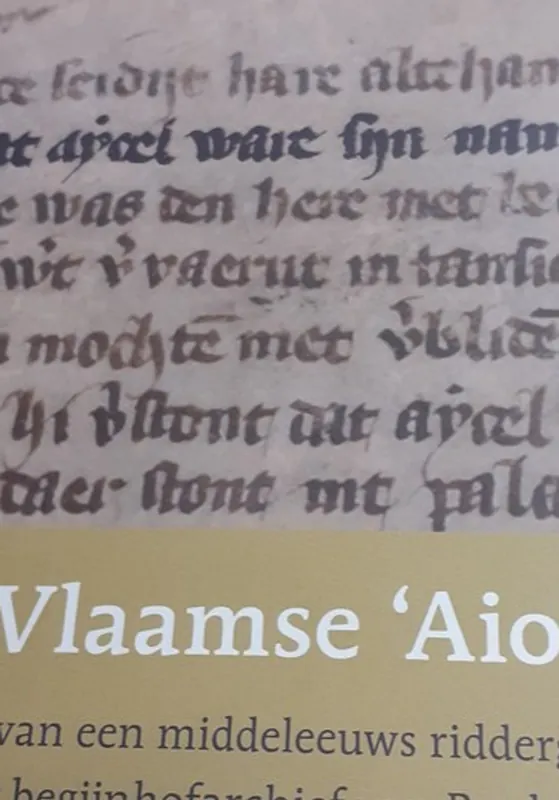 te seidyt haie altehan
t aÿoel waie sijn nam
e was den here met
v̾vaerut in tansi
mochtē met v̾blidē
hi v̾stont dat aÿoel
daer stont int pala
Vlaamse ‘Aio
van een middeleeuws ridderg
begijnhofarchief